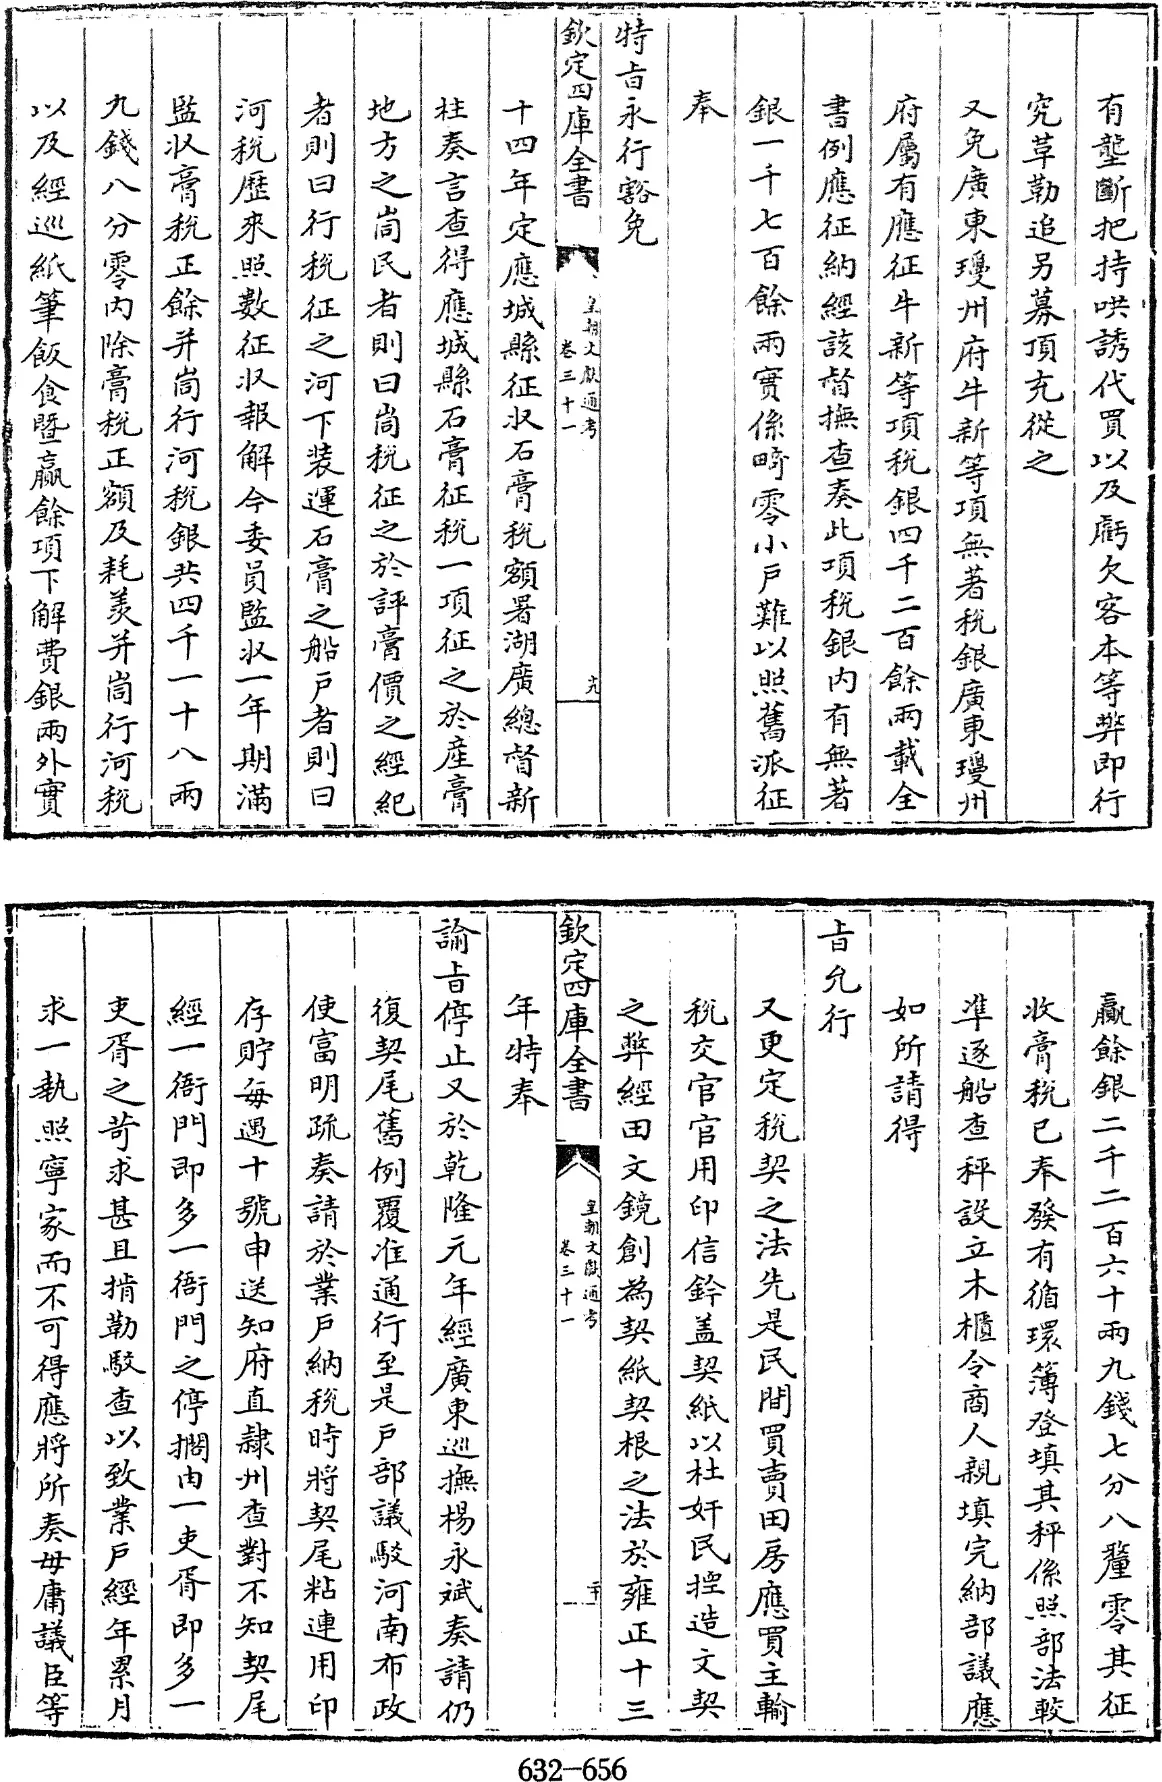 有壟斷把持哄誘代買以及虧欠客本等弊即行
究革勒追另募頂充從之
又免廣東瓊州府牛新等項無著稅銀廣東瓊州
府屬有應征牛新等項稅銀四千二百餘兩載全
書例應征納經該督撫查奏此項稅銀內有無著
銀一千七百餘兩實係畸零小戶難以照舊派征
奉
特旨永行豁免
欽定四庫全書
皇朝文獻通考
卷三十一
十九
十四年定應城縣征收石膏稅額署湖廣總督新
柱奏言查得應城縣石膏征稅一項征之於產膏
地方之崗民者則曰崗稅征之於評膏價之經紀
者則曰行稅征之河下裝運石膏之船戶者則曰
河稅歷來照數征收報解今委員監收一年期滿
監收膏稅正餘并崗行河稅銀共四千一十八兩
九錢八分零內除膏稅正額及耗羨并崗行河稅
以及經巡紙筆飯食暨贏餘項下解費銀兩外實
贏餘銀二千二百六十兩九錢七分八釐零其征
收膏稅已奉發有循環簿登填其秤係照部法較
準逐船查秤設立木櫃令商人親填完納部議應
如所請得
旨允行
又更定稅契之法先是民間買賣田房應買主輸
稅交官官用印信鈐蓋契紙以杜奸民揑造文契
之弊經田文鏡創為契紙契根之法於雍正十三
欽定四庫全書
皇朝文獻通考
卷三十一
二十
年特奉
諭旨停止又於乾隆元年經廣東巡撫楊永斌奏請仍
復契尾舊例覆准通行至是戶部議駁河南布政
使富明疏奏請於業戶納稅時將契尾粘連用印
存貯每遇十號申送知府直隸州查對不知契尾
經一衙門即多一衙門之停擱由一吏胥即多一
吏胥之苛求甚且揹勒駁查以致業戶經年累月
求一執照寧家而不可得應將所奏毋庸議臣等
632-656